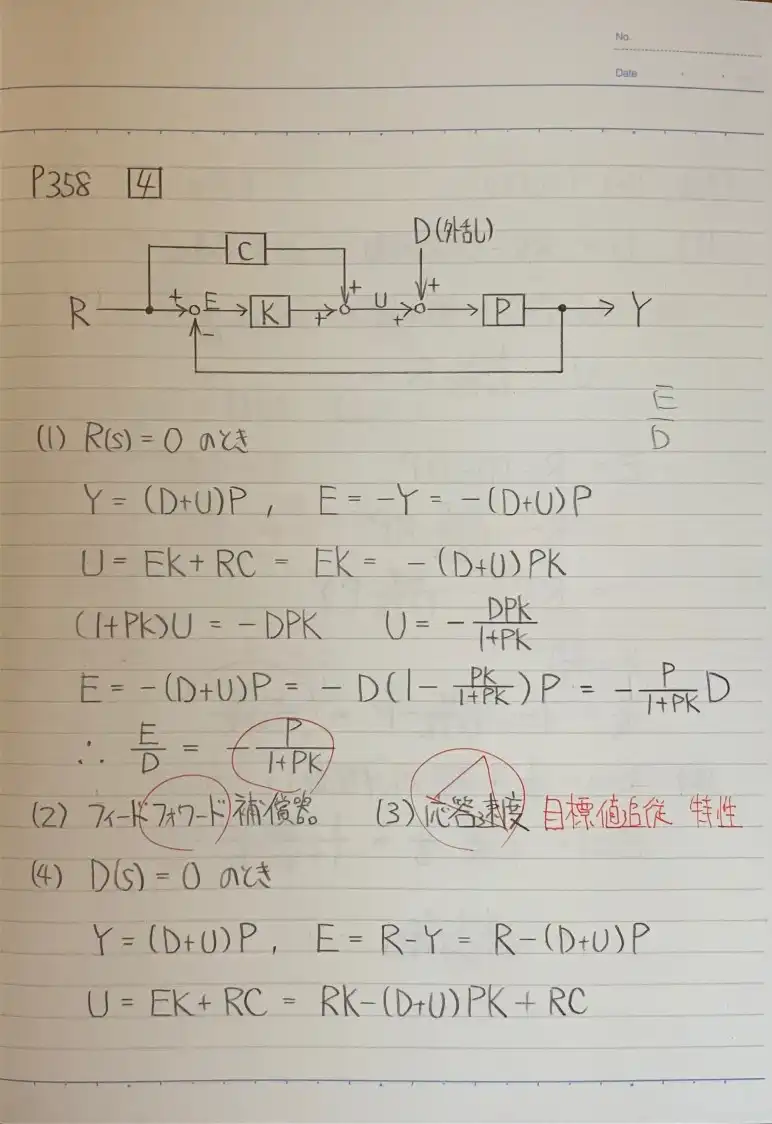 No.
Date
P358 4
C D(外乱)
R + E K + + U + + P Y
−
E/D
(1) R(s) = 0 のとき
Y = (D+U)P , E = -Y = -(D+U)P
U = EK + RC = EK = -(D+U)PK
(1+PK)U = -DPK U = - DPK/1+PK
E = -(D+U)P = - D(1- PK/1+PK)P = - P/1+PK D
∴ E/D = - P/1+PK
(2) フィードフォワード補償器。 (3) 応答速度 目標値追従 特性
(4) D(s) = 0 のとき
Y = (D+U)P , E = R-Y = R-(D+U)P
U = EK + RC = RK-(D+U)PK + RC